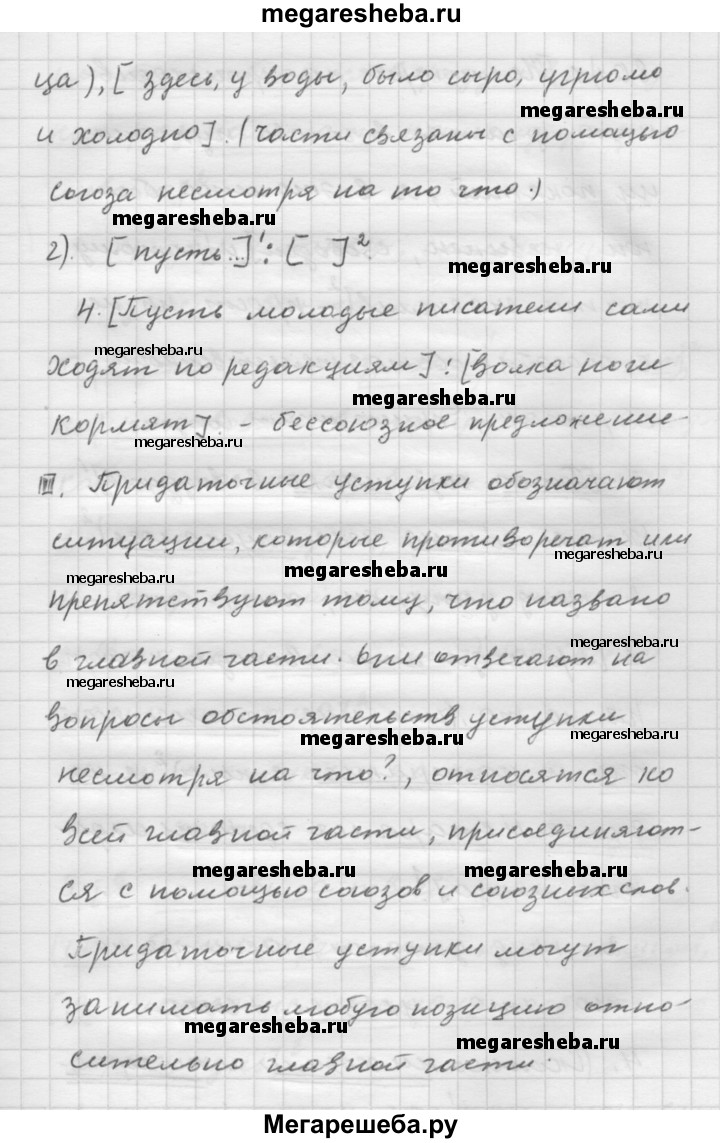 megaresheba.ru
ца), [ здесь, у воды, было сыро, угрюмо
megaresheba.ru
и холодно]. (части связаны с помощью
megaresheba.ru
союза несмотря на то что.)
megaresheba.ru
2). [ пусть...]¹: [ ]²
megaresheba.ru
4. [Пусть молодые писатели сами
megaresheba.ru
ходят по редакциям] : [волка ноги
megaresheba.ru
кормят]. - бессоюзное предложение
megaresheba.ru
megaresheba.ru
III. Придаточные уступки обозначают
ситуации, которые противоречат или
megaresheba.ru
megaresheba.ru
megaresheba.ru
препятствуют тому, что названо
megaresheba.ru
в главной части. Они отвечают на
megaresheba.ru
вопросы обстоятельств уступки
megaresheba.ru
megaresheba.ru
несмотря на что?, относятся ко
всей главной части, присоединяют-
megaresheba.ru
megaresheba.ru
ся с помощью союзов и союзных слов.
Придаточные уступки могут
занимать любую позицию отно-
megaresheba.ru
megaresheba.ru
сительно главной части.
Мегарешеба.ру